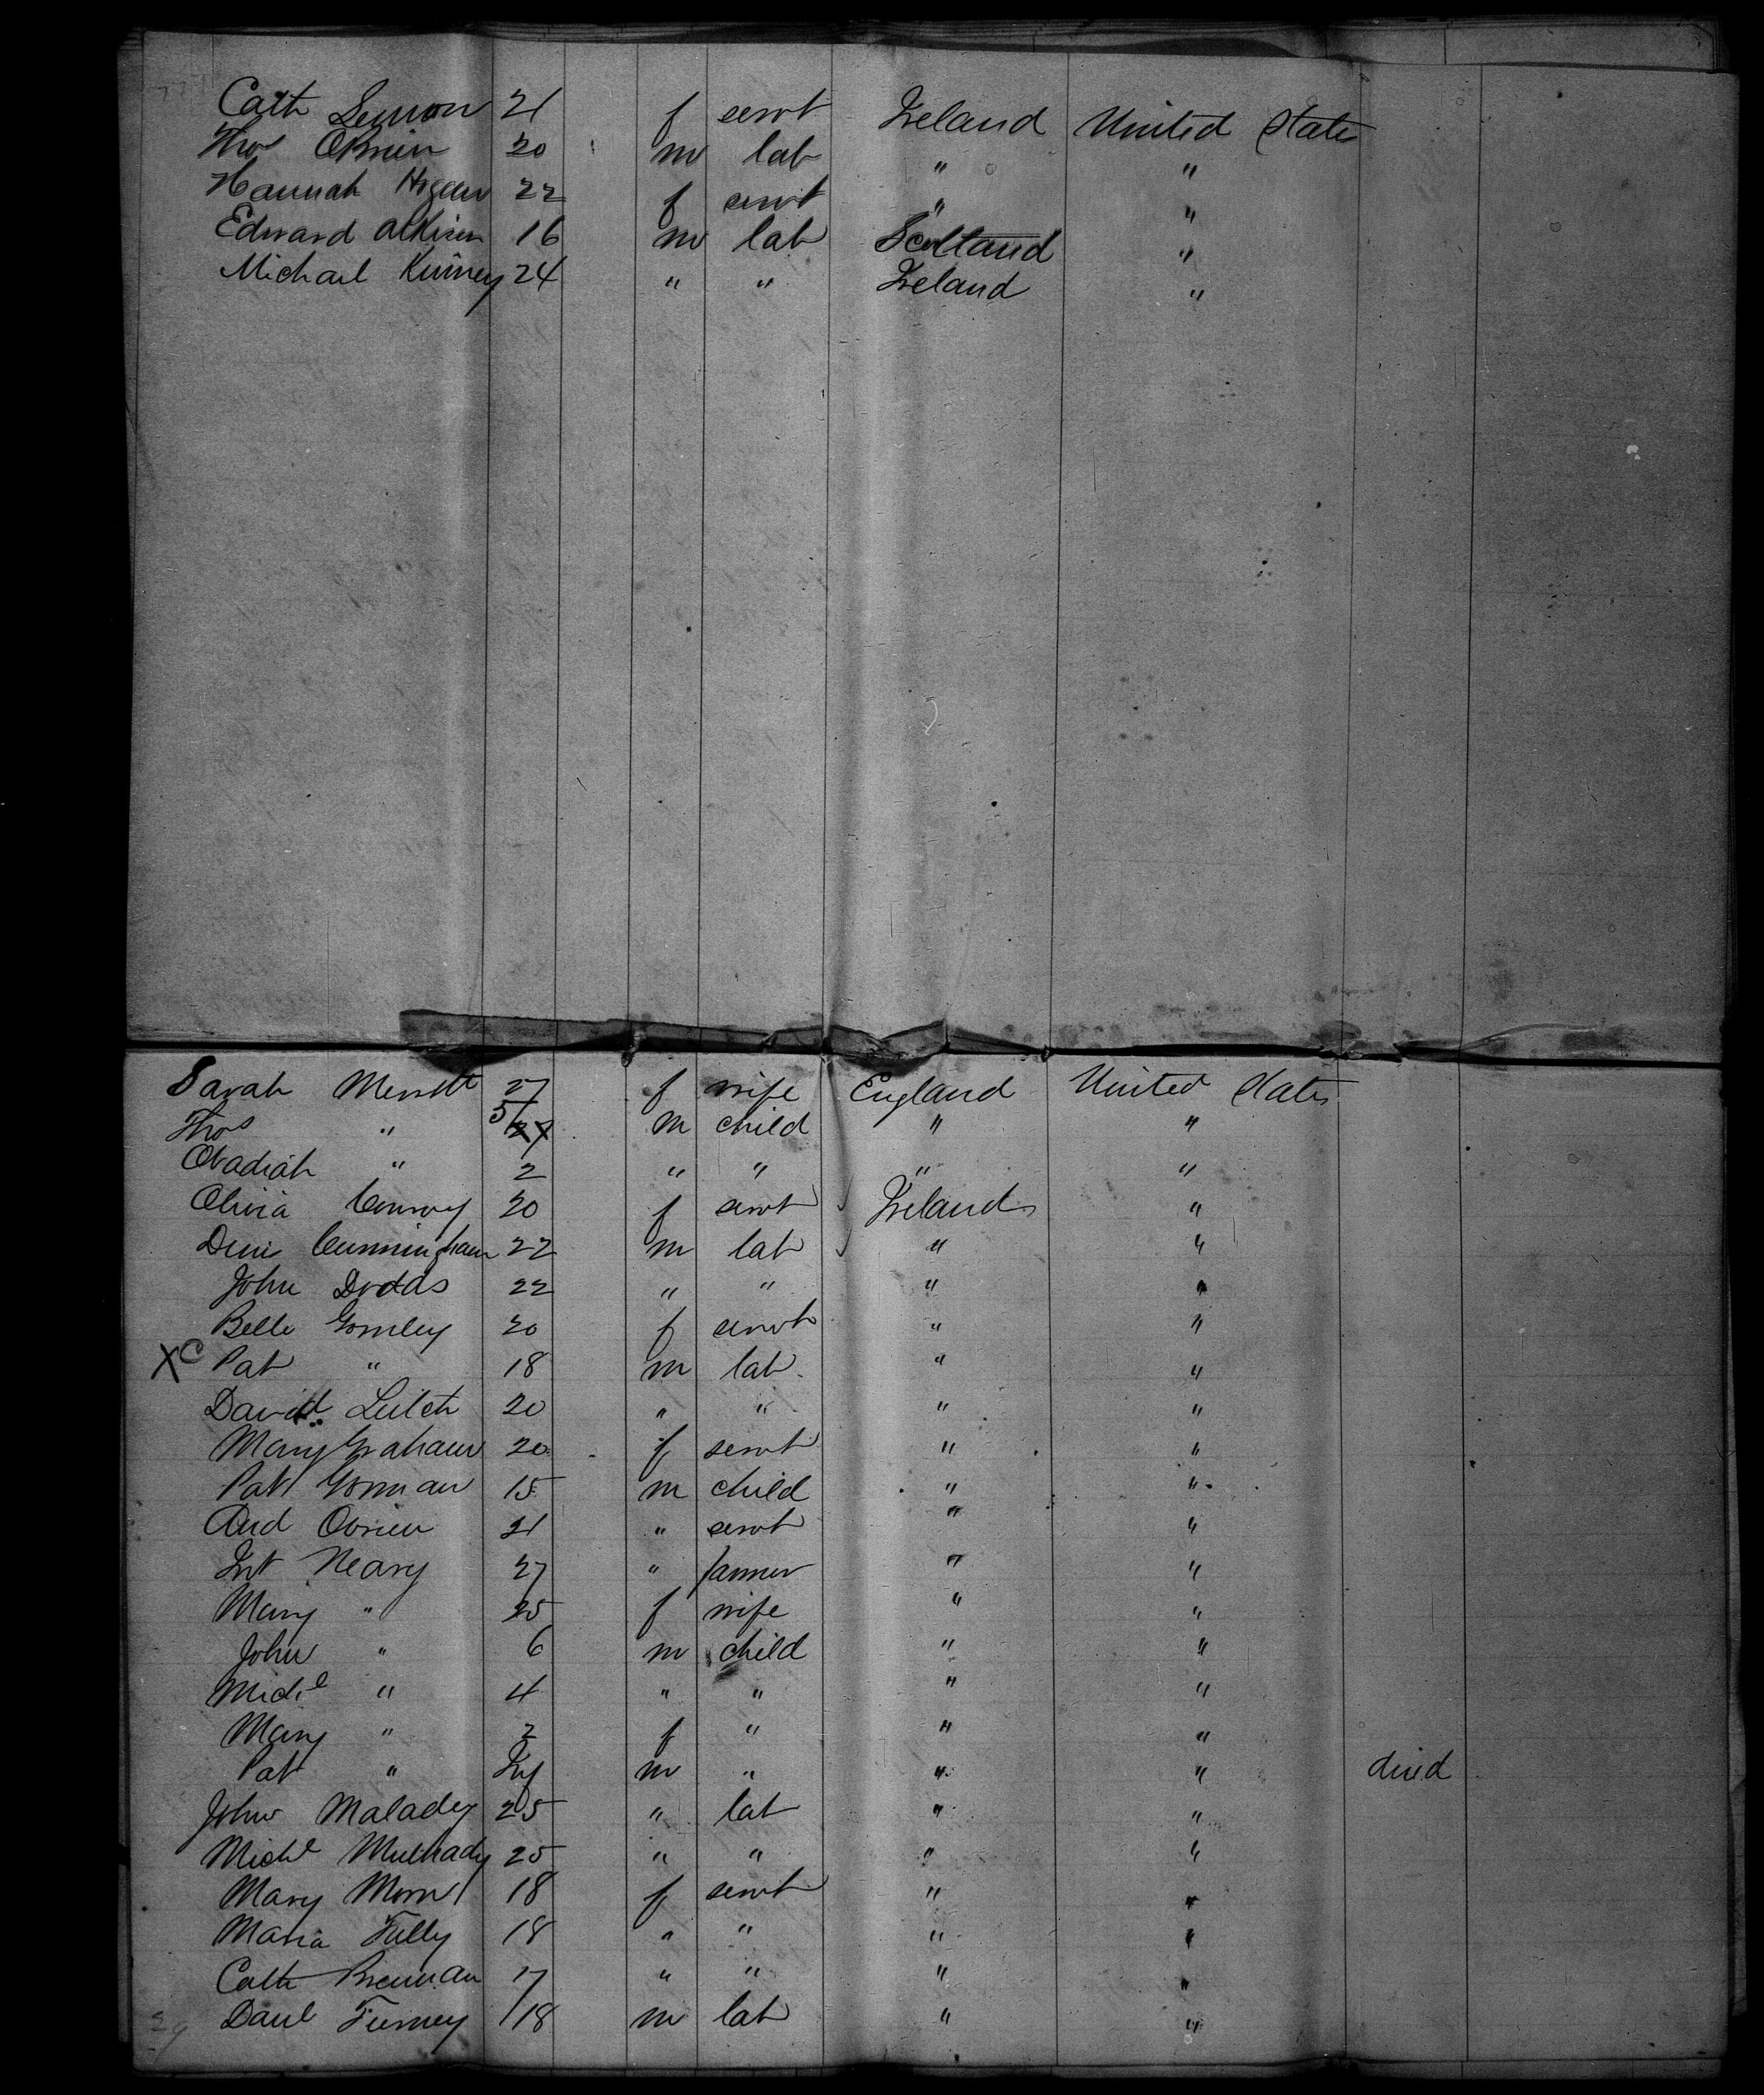 Cath Lennon 21 f servt Ireland United States
Thos OBrien 20 m lab " "
Hannah Hogan 22 f servt " "
Edward Atkisen 16 m lab Scotland "
Michael Kinney 24 " " Ireland "
Sarah Merritt 27 f wife England United States
Thos " 5 m child " "
Obadiah " 2 " " " "
Olivia Conroy 20 f servt Ireland "
Denis Cunningham 22 m lab " "
John Dodds 22 " " " "
Belle Gormley 20 f servt " "
XC Pat " 18 m lab " "
David Leitch 20 " " " "
Mary Graham 20 f servt " "
Pat Gorman 15 m child " "
And Obrien 21 " servt " "
Neary 27 " farmer " "
Mary " 25 f wife " "
John " 6 m child " "
Michl " 4 " " " "
Mary " 2 f " " "
Pat " Inf m " " " died
John Malady 25 " lab " "
Michl 25 " " " "
Mary 18 f servt " "
Maria Tully 18 " " " "
Cath Brennan 17 " " " "
Danl 18 m lab " "